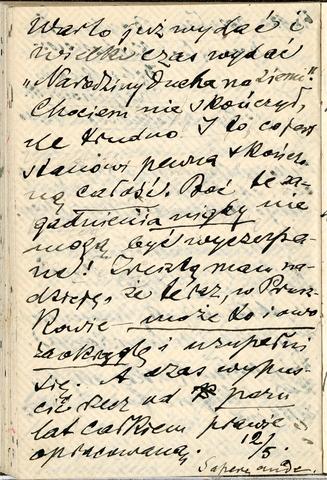 Warto już wydać i
wielki czas wydać
„Narodziny Ducha na Ziemi".
Chociem nie skończył,
ale trudno. I to co jest
stanowi pewną skończo-
ną całość. Boć te za-
gadnienia nigdy nie
mogą być wyczerpa-
ne! Zresztą mam na-
dzieję, że teraz, w Prusz-
kowie może to i owo
zaokrąglę i uzupełni
się. A czas wypuś-
cić rzecz od paru
lat całkiem prawie
opracowaną.
12/5.